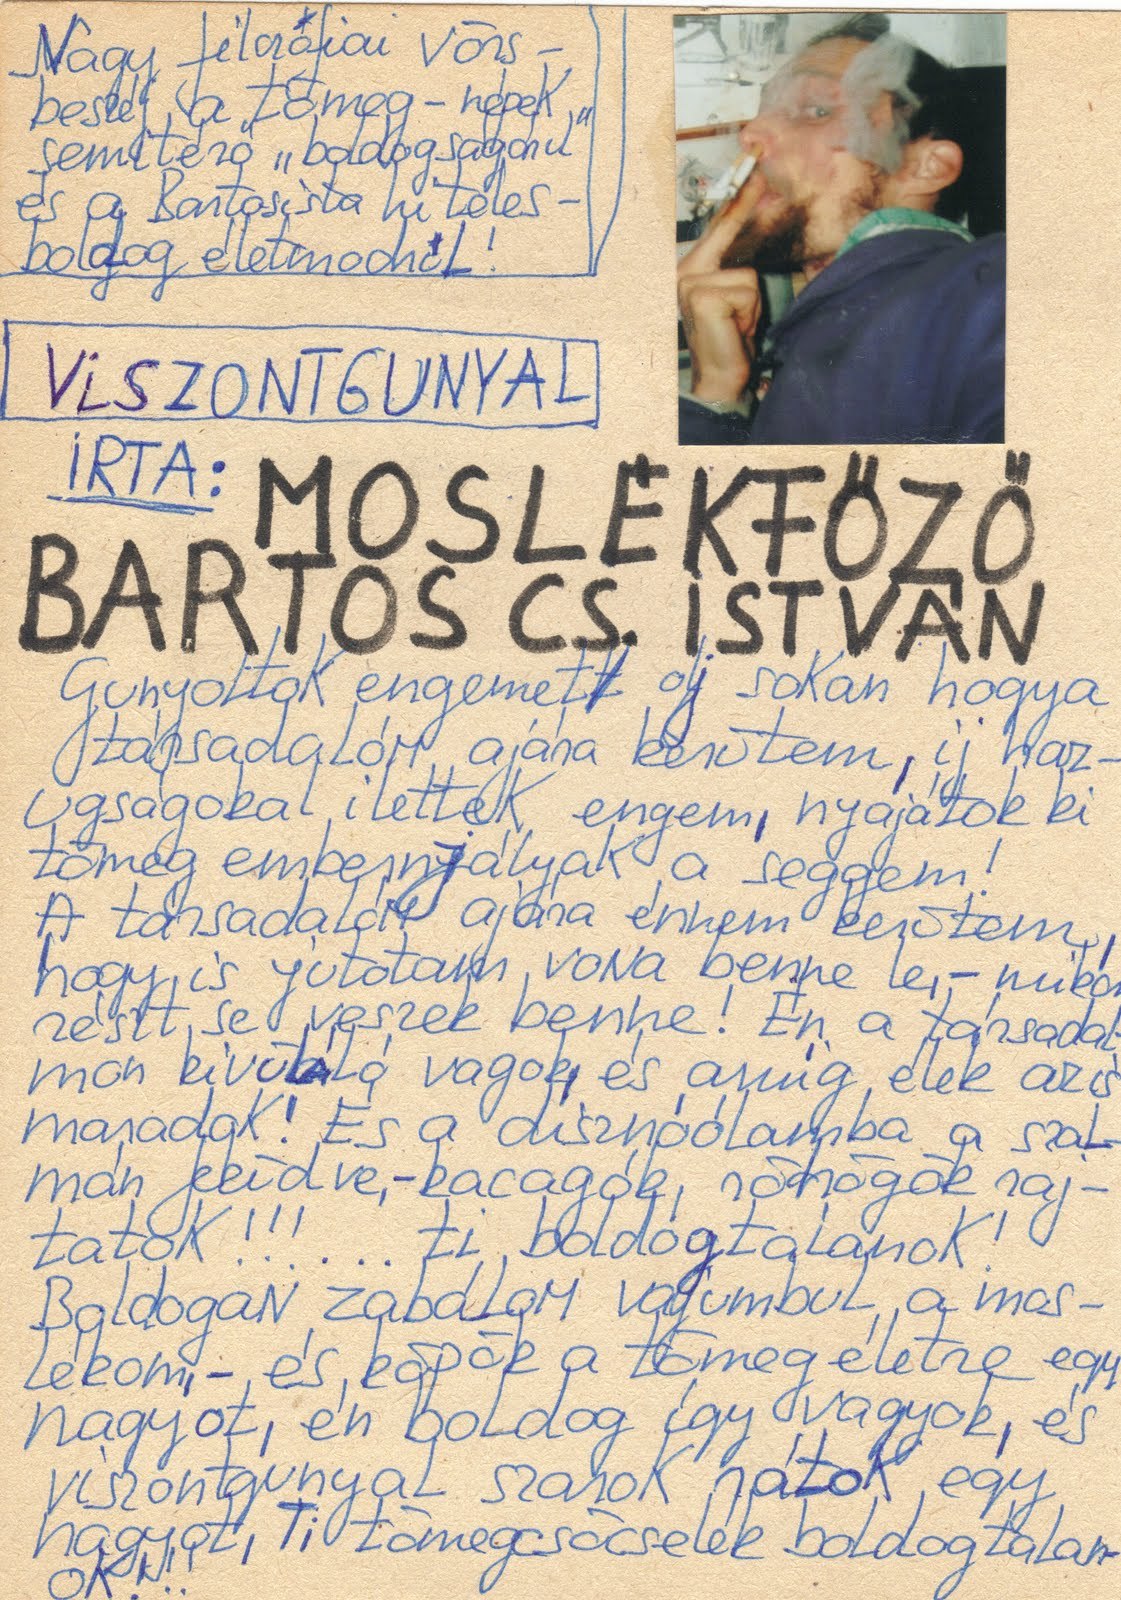 Nagy filozófiai vörs-
beszéj a tömeg-népek
semitérő „boldogságárul"
és a Bartosista hiteles-
boldog életmodrúL!
ViSZONTGUNYAL
iRTA:
MOSLÉKFŐZŐ
BARTOS CS. iSTVÁN
Gunyoltok engemett oj sokan hogya
társadalóm ajára kerűtem, ij haz-
ugságokal ilettek engem, nyajátok ki
tömeg embernyjályak a seggem!
A társadalóm ajára énnem kerűtem,
hogy is jutotam vóna benne le,- mikor
részt se veszek benne! Én a társadal-
mon kivűláló vagok, és amig élek azis
maradok! És a disznóólamba a szal-
mán feküdve,-kacagók, röhögök raj-
tatok!!!... ti, boldógtalanok!
BoldogáN zabálom vájumbul a mos-
lékom,- és köpök a tömegéletre egy
nagyot, én boldog így vagyok, és
viszontgunyal szarok rátok egy
nagyot, Ti tömegcsőcselék boldogtalan-
OK.!!